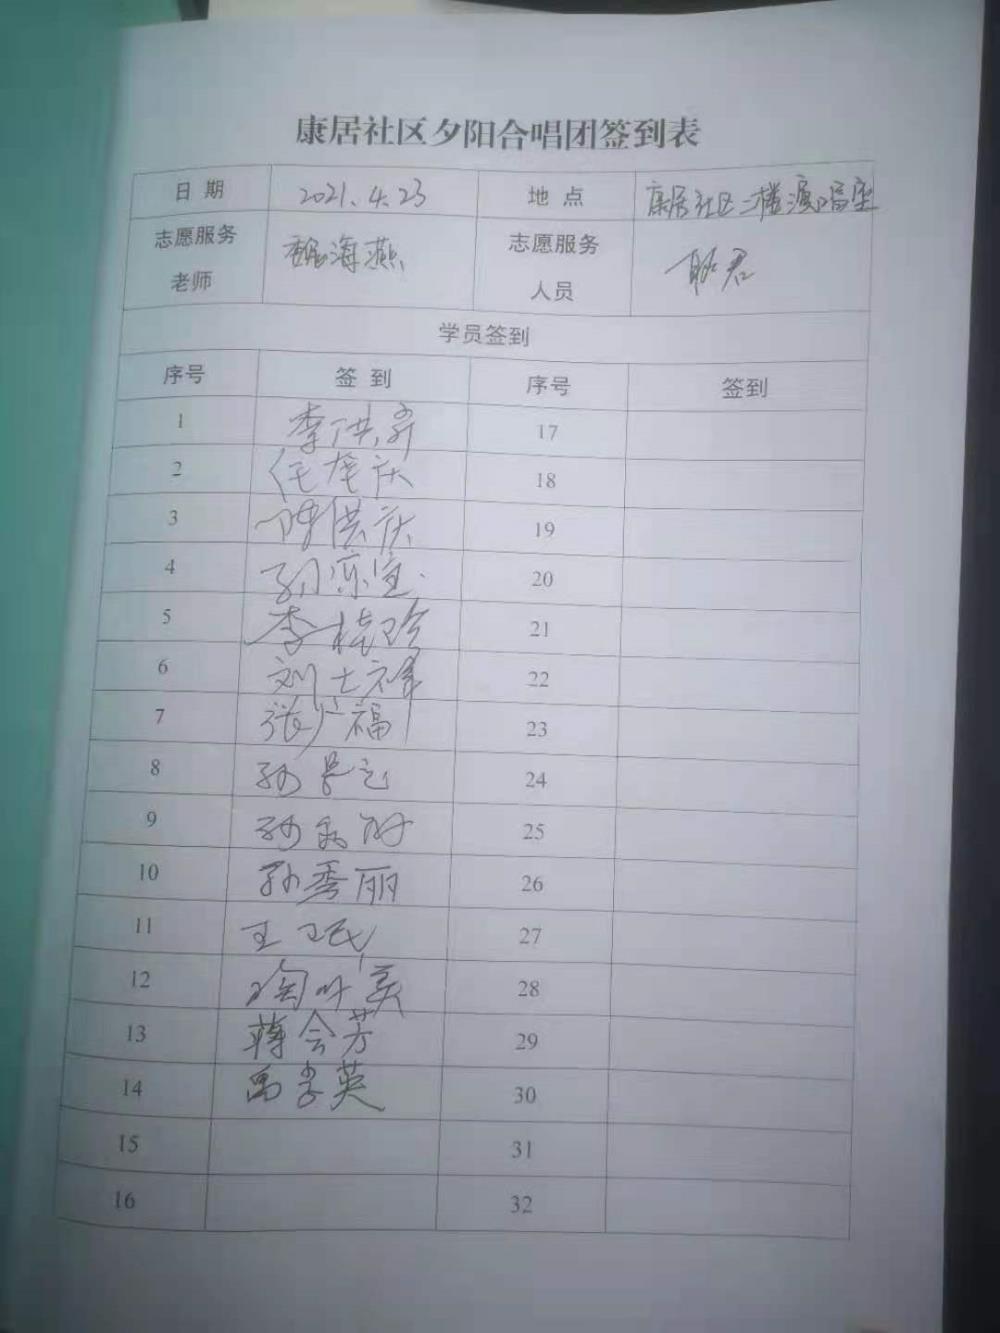 康居社区夕阳合唱团签到表
日期 2021.4.23 地点 康居社区二楼演唱室
志愿服务老师 魏海燕 志愿服务人员 耿君
学员签到
序号 签到 序号 签到
1 李洪 17
2 任 庆 18
3 陈洪庆 19
4 孙 20
5 李桂珍 21
6 刘士祥 22
7 张广福 23
8 孙 24
9 孙 25
10 孙秀丽 26
11 王卫民 27
12 陶叶美 28
13 蒋会芳 29
14 英 30
15 31
16 32